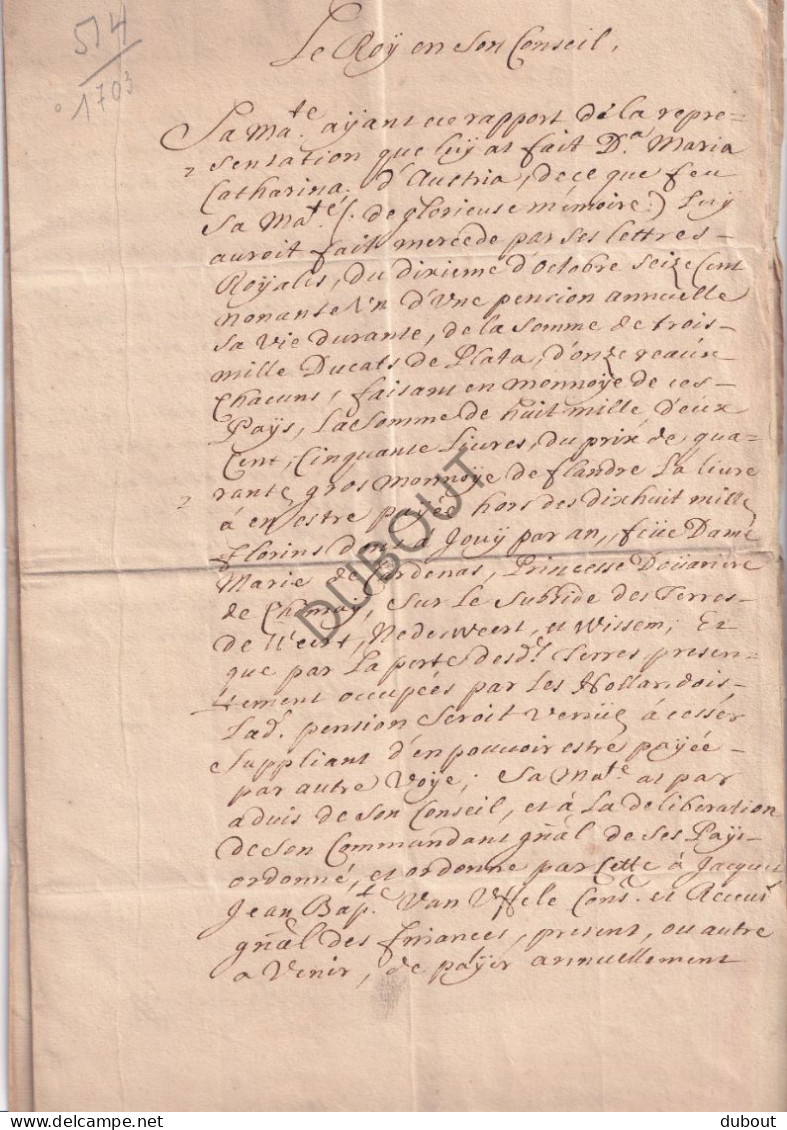 514
1703
Le Roÿ en Son Conseil,
Sa Ma.te aÿant eu rapport de la repre-
sentation que luÿ at fait D.a Maria
Catharina d'Austria, de ce que feu
Sa Ma.té (. de glorieuse mémoire.) Luÿ
auroit fait mercede par ses lettres
Roÿales, du dixieme d'octobre seize Cent
nonante Un d'Une pension annuelle
sa vie durante, de la somme de trois-
mille Ducats de Plata, d'onze reaux
Chacuns, faisant en monnoÿe de ces-
Païs, La somme de huit mille, deux
Cent, Cinquante Livres, du prix de qua-
rante gros monnoÿe de flandre La livre
à en estre paÿée hors des dix huit mille
florins dont à Jouÿ par an, feüe Dame
Marie de Cardenas, Princesse Doüariere
de Chimaÿ, sur Le Subside des Terres-
de Weert, Nederweert, et Wissem; Et
que par La perte desd.es Terres presen-
tement occupées par Les Hollandois-
Lad.e pension seroit venüe à cesser
Suppliant d'en pouvoir estre paÿée-
par autre Voÿe; Sa Ma.te at par
aduis de son Conseil, et à La deliberation
de son Commandant gñal de ses Païs-
ordonné, et ordonne par Cette à Jacques
Jean Bap.te Van Uffele Cons.r et Receu.r
gñal des finances, present, ou autre
a Venir, de paÿer annuellement
DUBOUT
delcampe.net
dubout